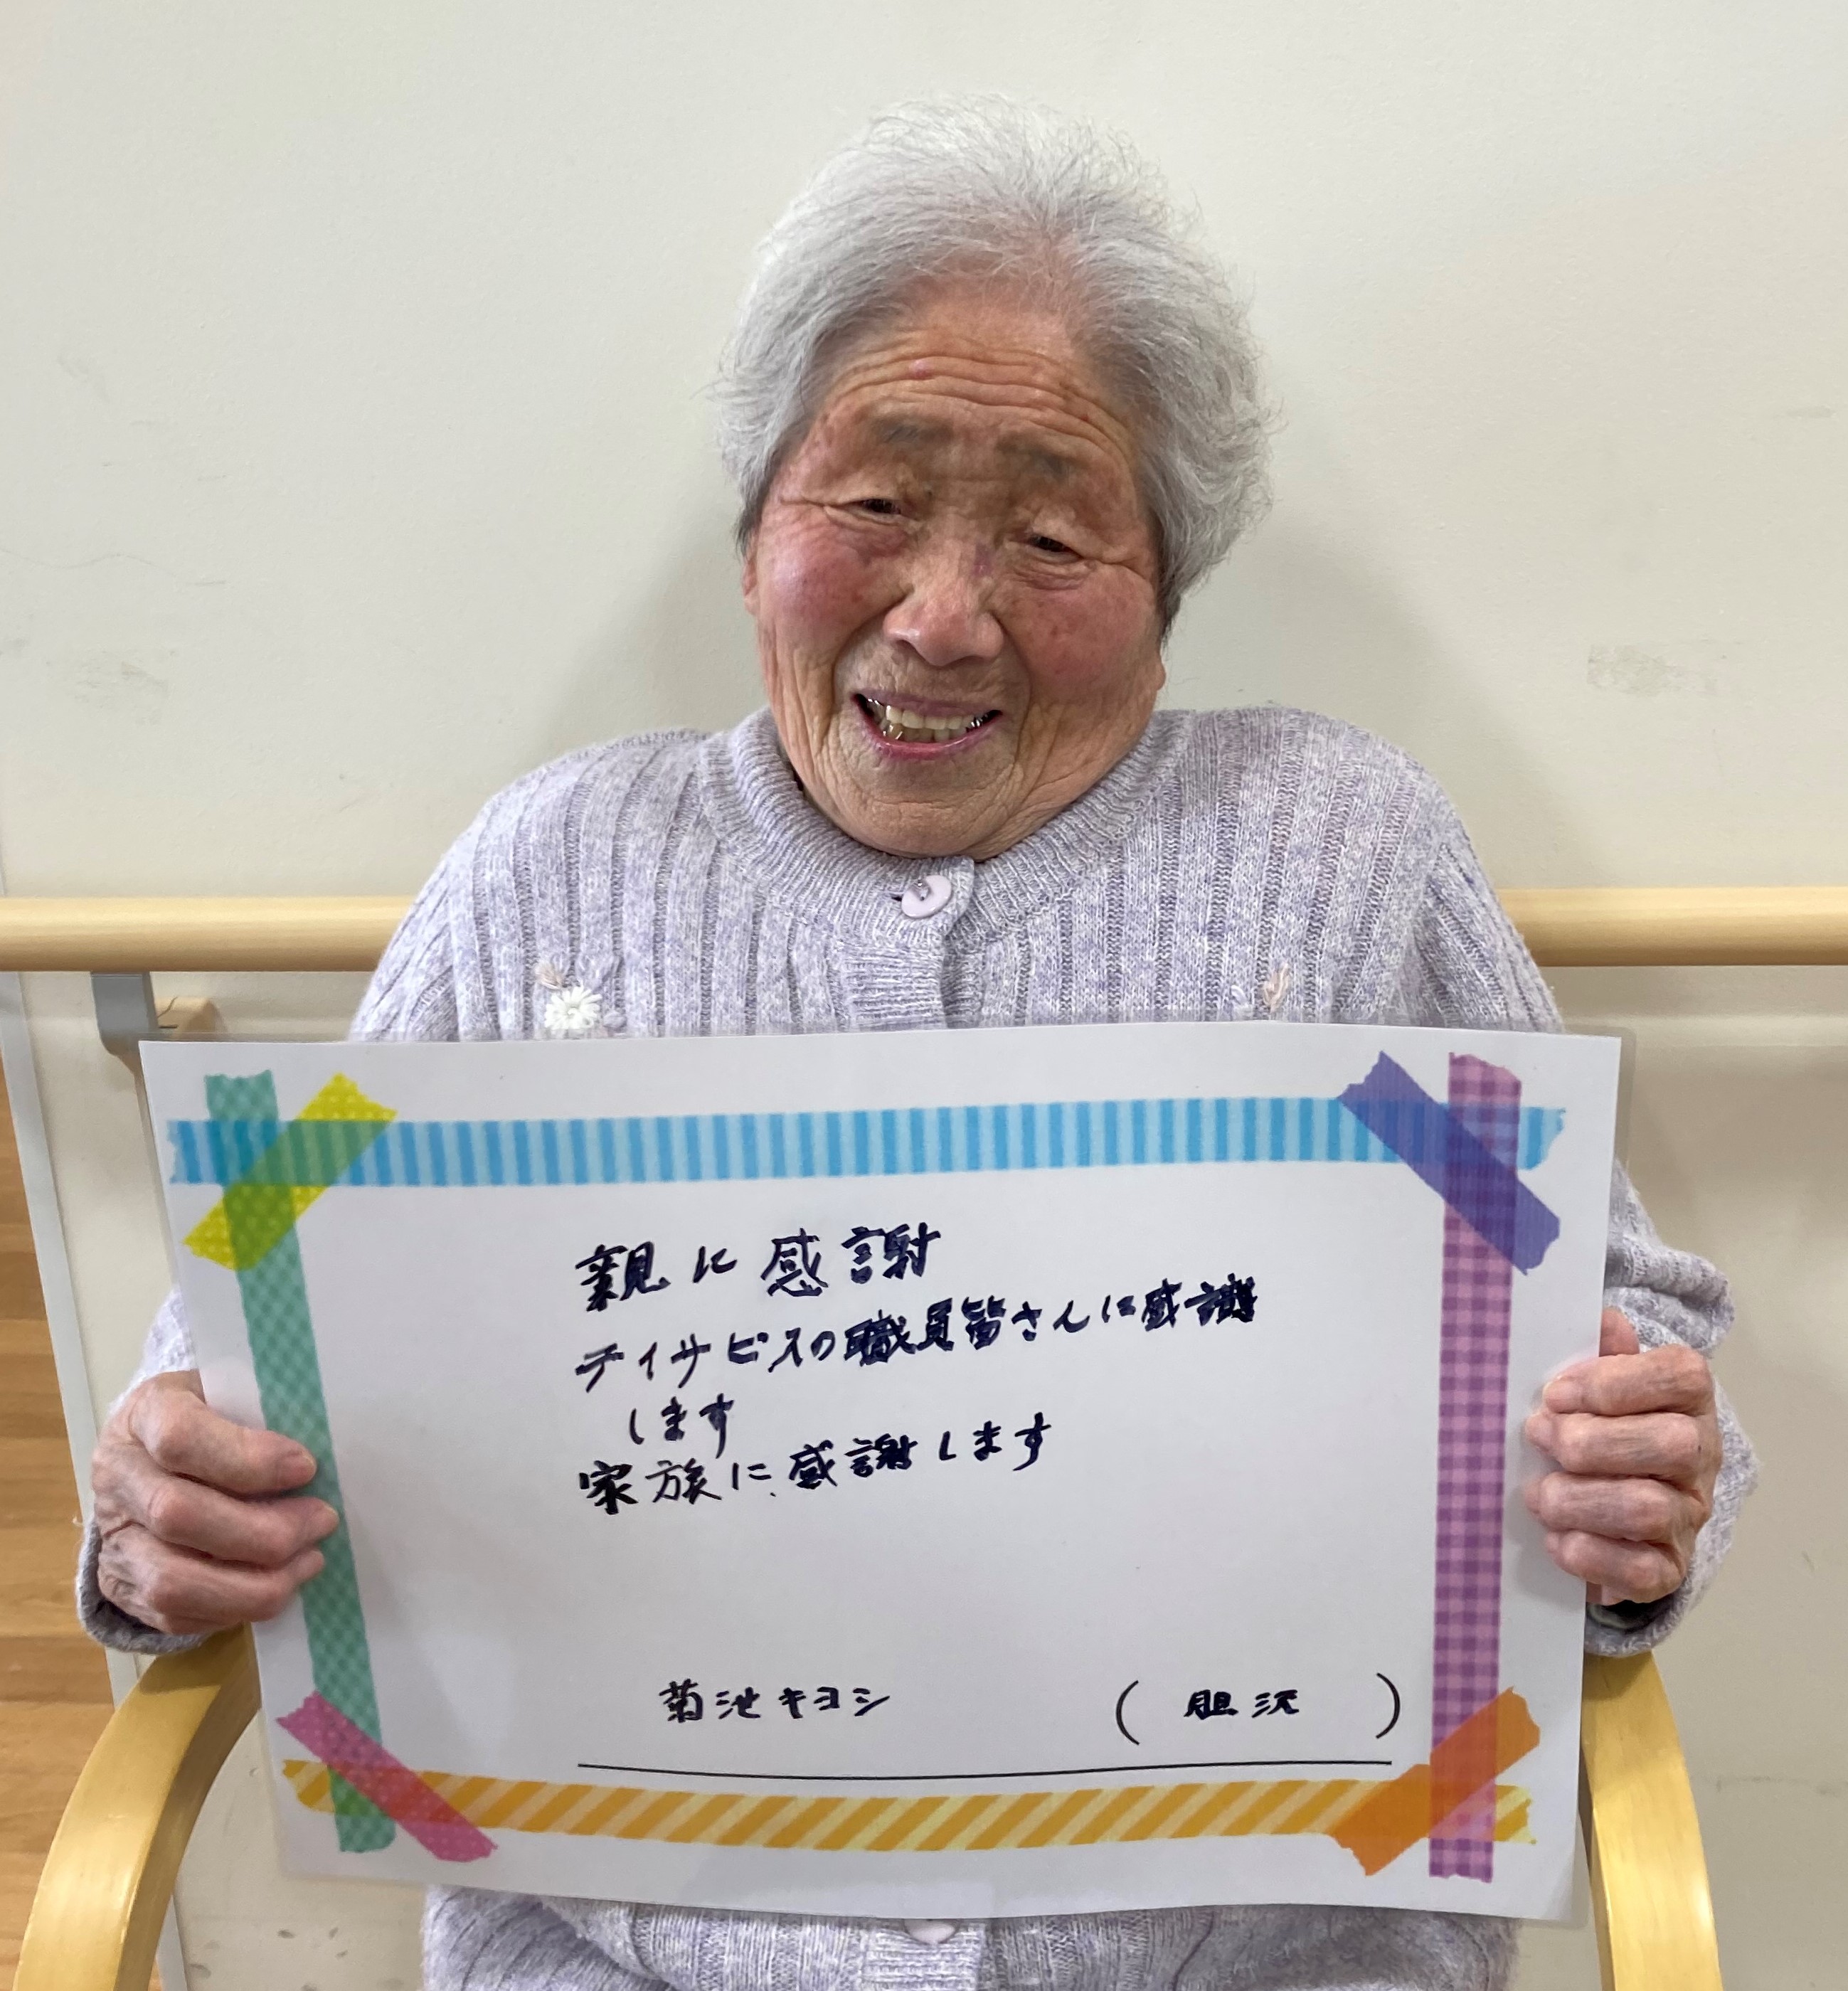 親に感謝
デイサビスの職員皆さんに感謝
します
家族に感謝します
菊池キヨシ （胆沢）